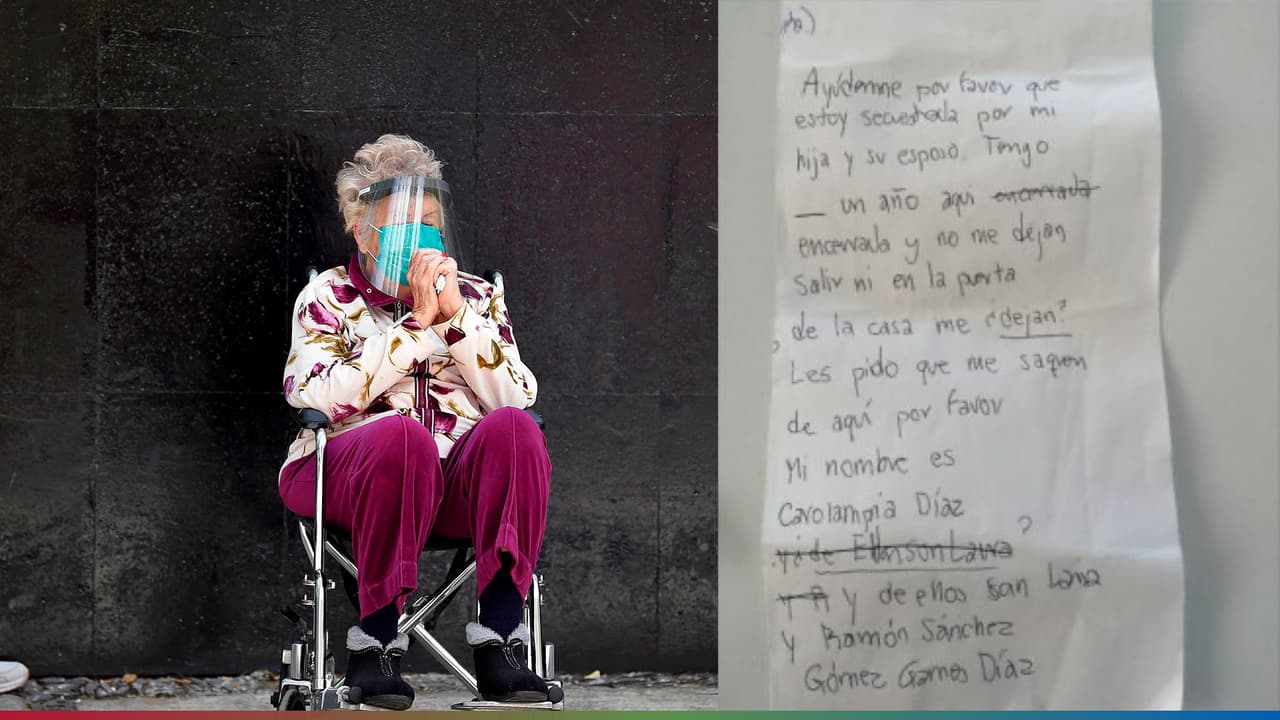 Ayúdenme por favor que
estoy secuestrada por mi
hija y su esposo. Tengo
_ un año aquí encerrada
encerrada y no me dejan
Salir ni en la puerta
de la casa me ¿dejan?
Les pido que me saquen
de aquí por favor
Mi nombre es
Carolampia Díaz
?
y de ellos son Lana
y Ramón Sánchez
Gómez Gamos Díaz